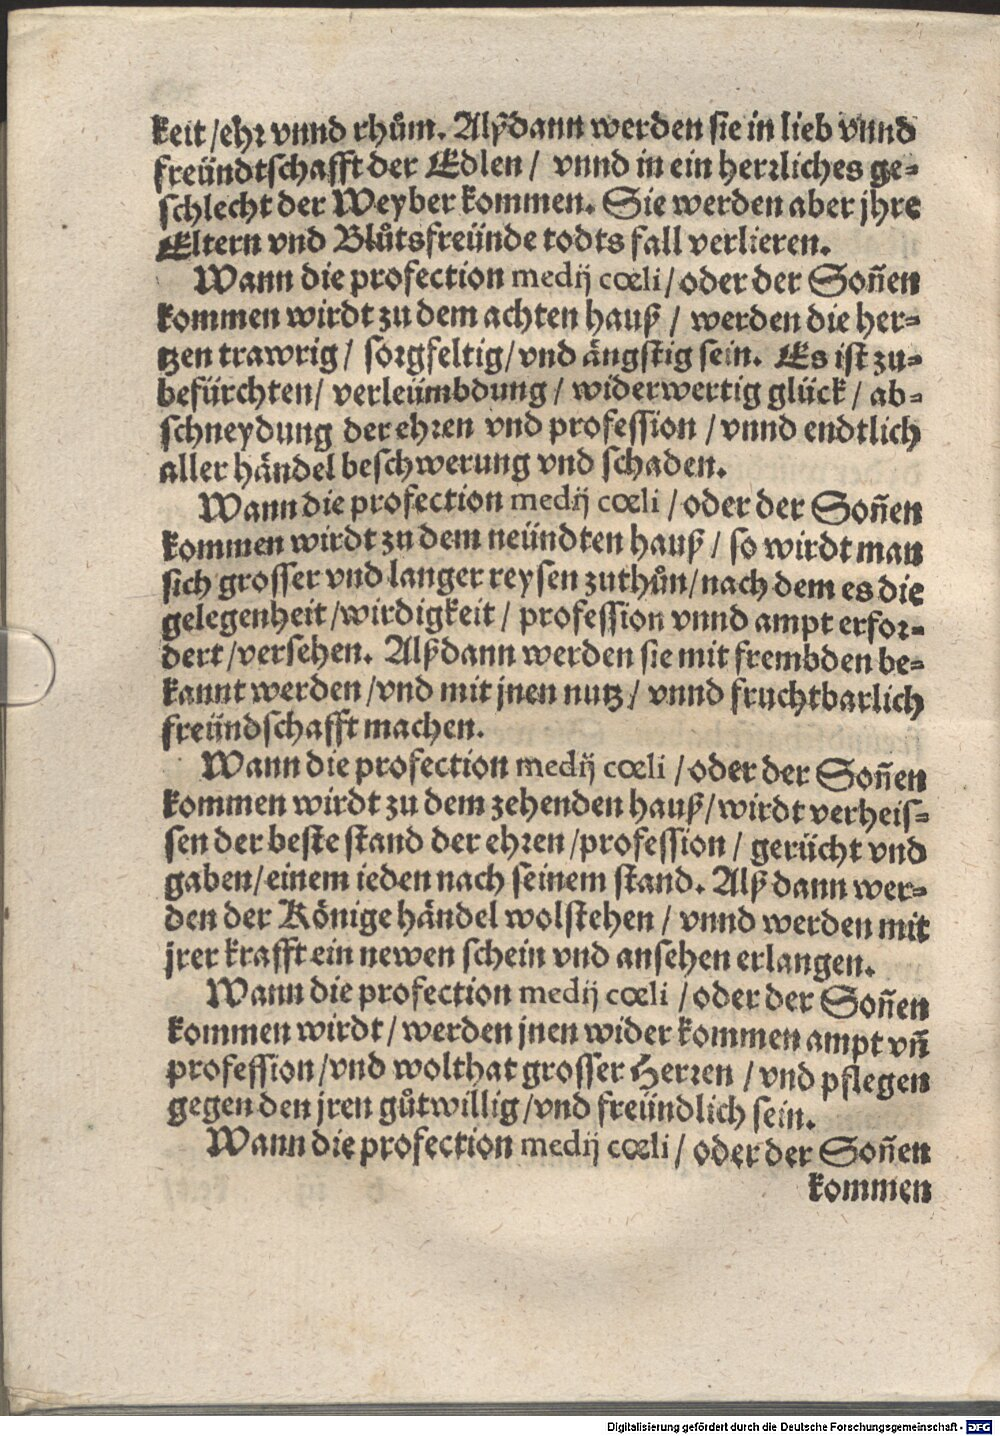 keit /ehr vnnd rhům. Alßdann werden sie in lieb vnnd
freündtschafft der Edlen / vnnd in ein herrliches ge-
schlecht der Weyber kommen. Sie werden aber jhre
Eltern vnd Blůtsfreünde todts fall verlieren.
Wann die profection medij cœli / oder der Soñen
kommen wirdt zu dem achten hauß / werden die her-
tzen trawrig / sorgfeltig / vnd ängstig sein. Es ist zu-
befürchten / verleümbdung / widerwertig glück / ab-
schneydung der ehren vnd profession / vnnd endtlich
aller händel beschwerung vnd schaden.
Wann die profection medij cœli / oder der Soñen
kommen wirdt zu dem neündten hauß / so wirdt man
sich grosser vnd langer reysen zuthůn / nach dem es die
gelegenheit / wirdigkeit / profession vnnd ampt erfor-
dert / versehen. Alßdann werden sie mit frembden be-
kannt werden / vnd mit jnen nutz / vnnd fruchtbarlich
freündschafft machen.
Wann die profection medij cœli / oder der Soñen
kommen wirdt zu dem zehenden hauß / wirdt verheis-
sen der beste stand der ehren / profession / gerücht vnd
gaben / einem ieden nach seinem stand. Alß dann wer-
den der Könige händel wolstehen / vnnd werden mit
jrer krafft ein newen schein vnd ansehen erlangen.
Wann die profection medij cœli / oder der Soñen
kommen wirdt / werden jnen wider kommen ampt vñ
profession / vnd wolthat grosser Herren / vnd pflegen
gegen den jren gůtwillig / vnd freündlich sein.
Wann die profection medij cœli / oder der Soñen
kommen
Digitalisierung gefördert durch die Deutsche Forschungsgemeinschaft - DFG